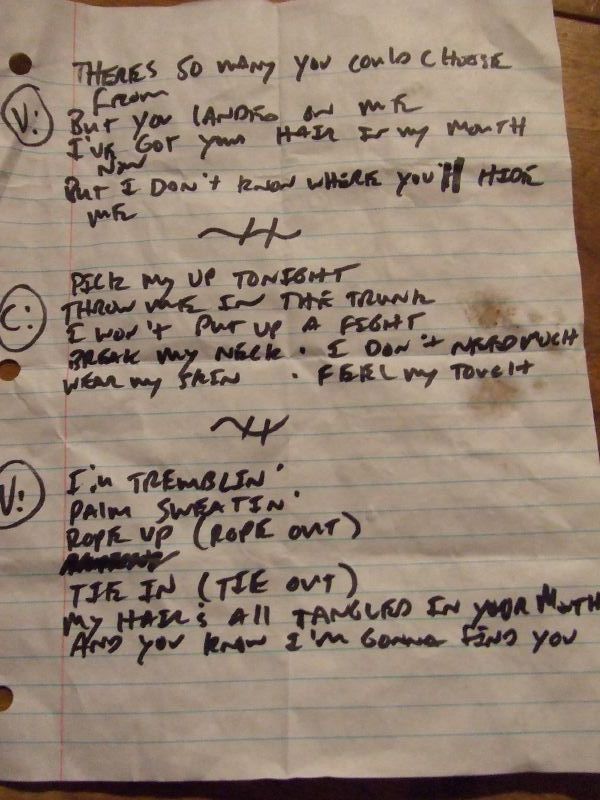 THERES SO MANY YOU COULD CHOOSE
FROM
V: BUT YOU LANDED ON ME
I'VE GOT YOUR HAIR IN MY MOUTH
NOW
BUT I DON'T KNOW WHERE YOU'll HIDE
ME
PICK MY UP TONIGHT
C: THROW ME IN THE TRUNK
I WON'T PUT UP A FIGHT
BREAK MY NECK . I DON'T NEED MUCH
WEAR MY SKIN . FEEL MY TOUCH
I'M TREMBLIN'
V: PALM SWEATIN'
ROPE UP (ROPE OUT)
TIE IN (TIE OUT)
MY HAIR'S All TANGLED IN YOUR MOUTH
AND YOU KNOW I'M GONNA FIND YOU